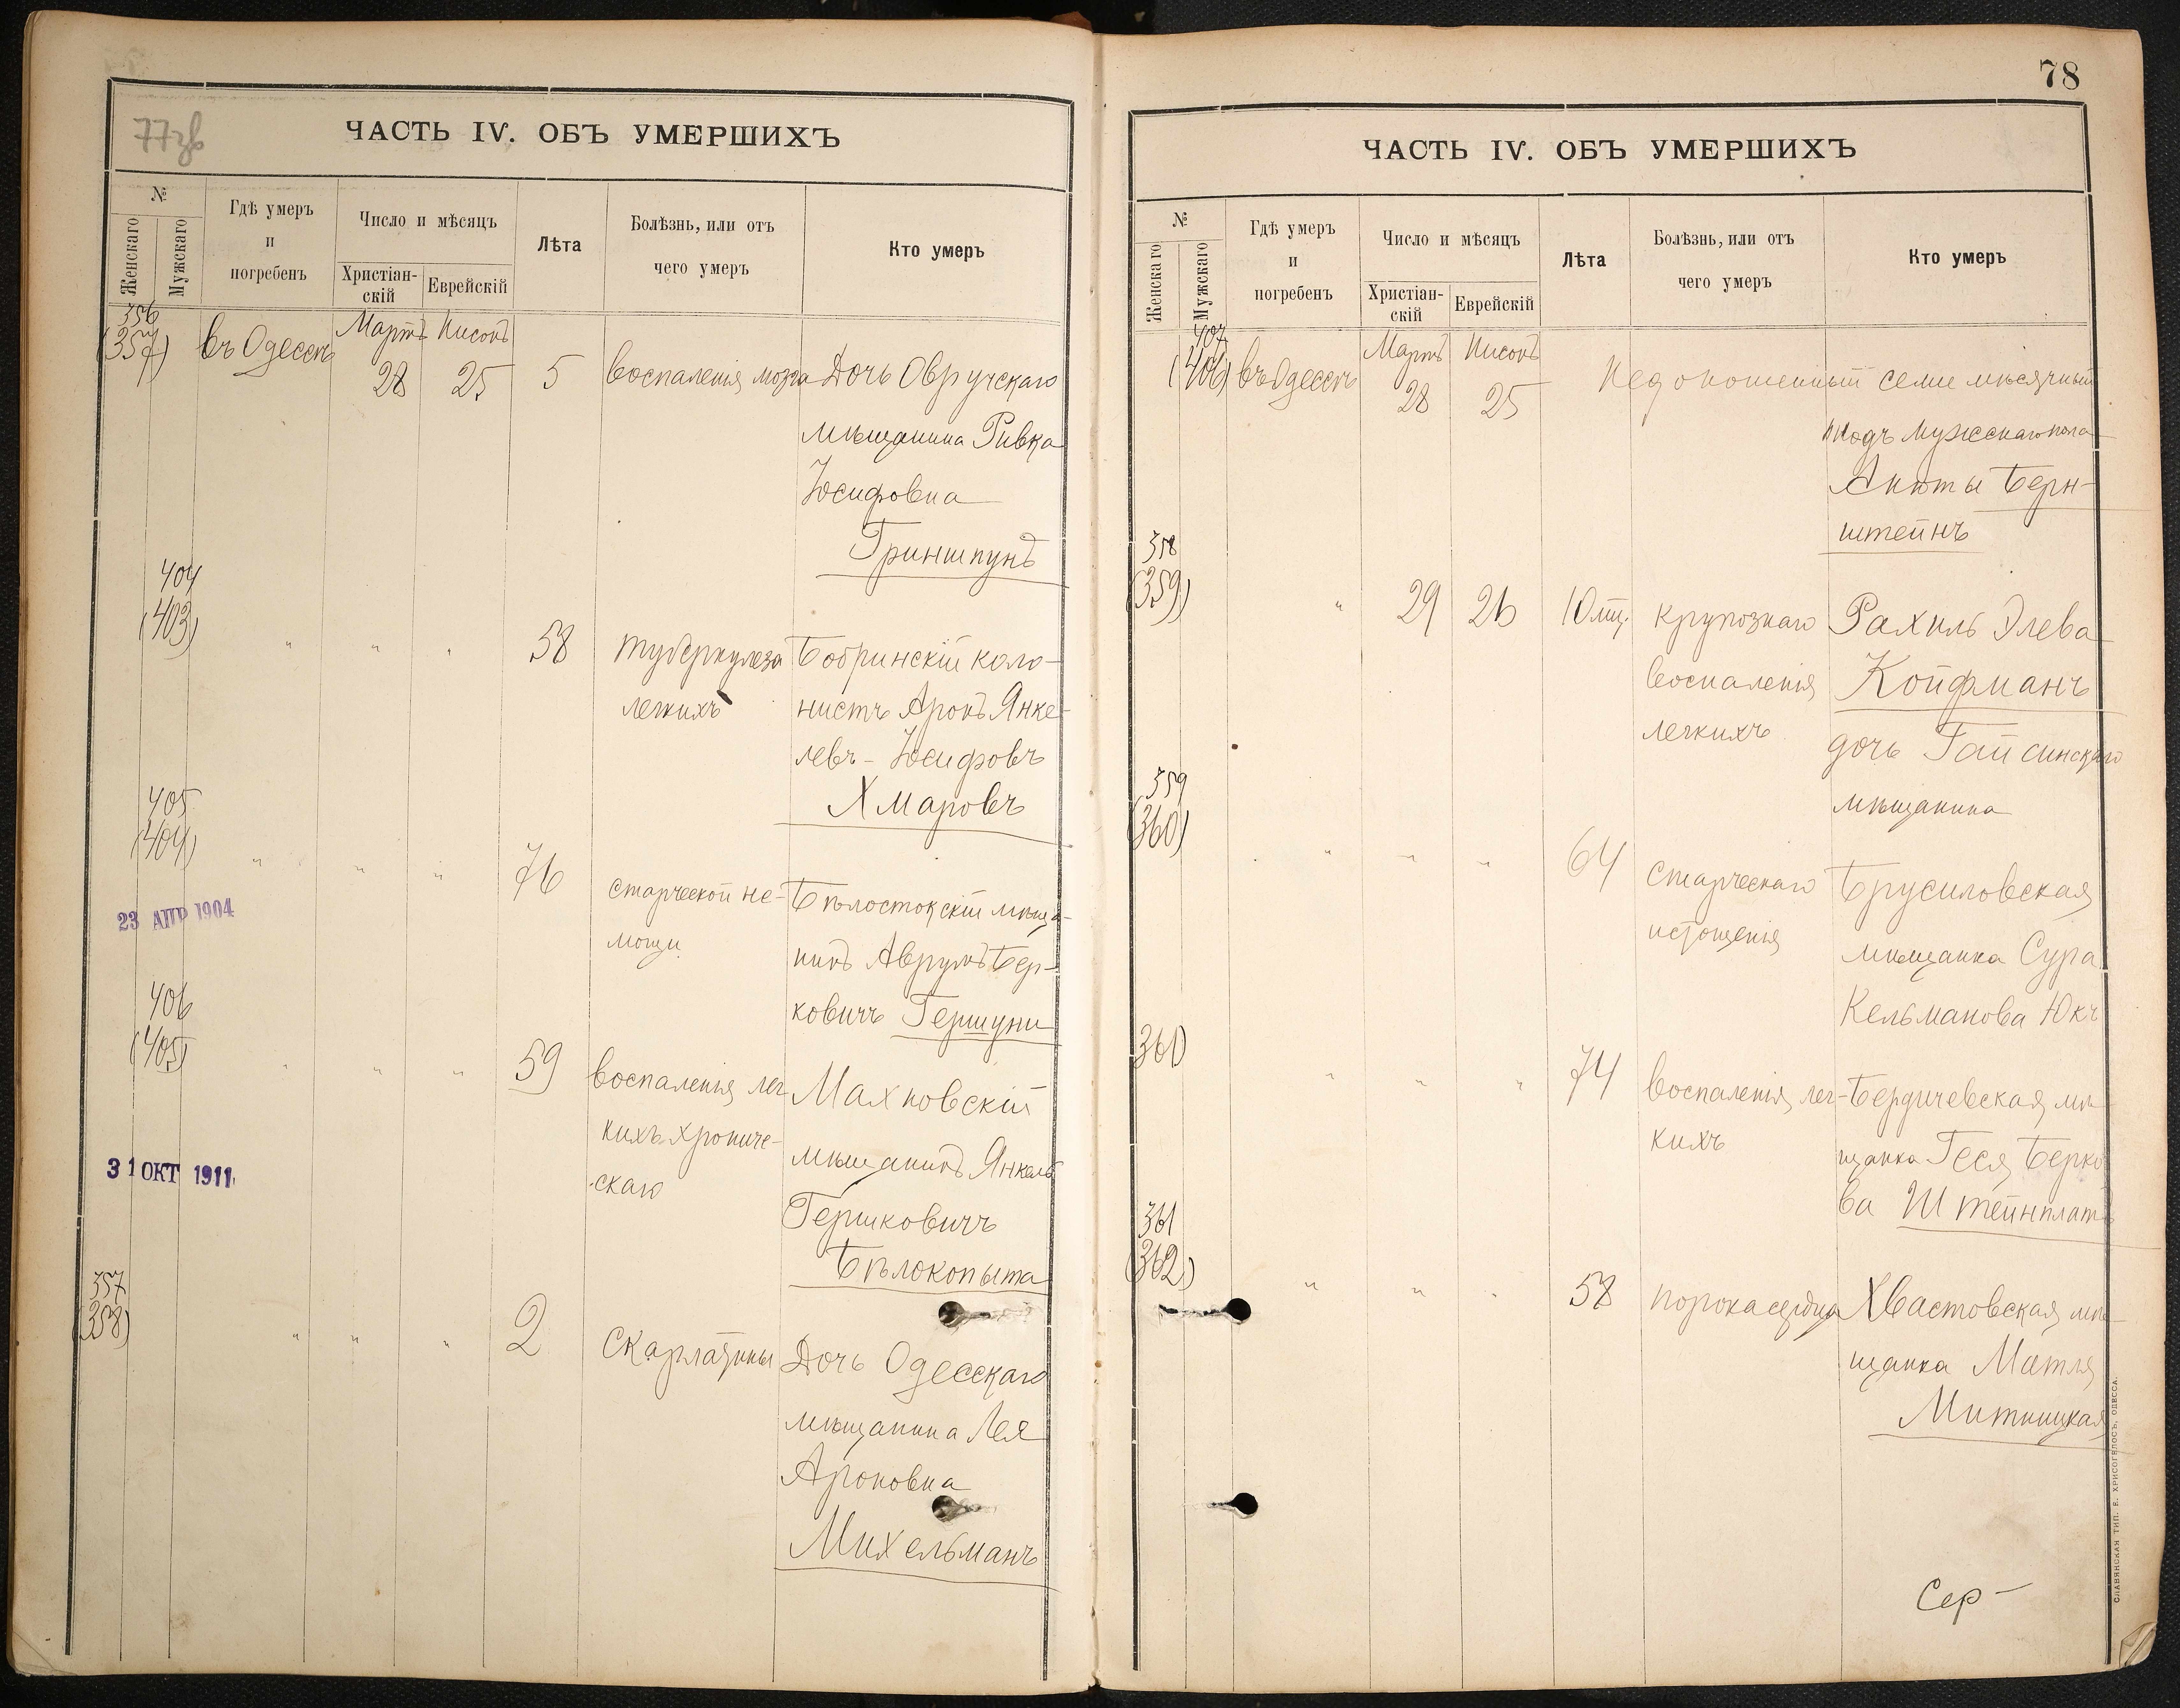 77зв
ЧАСТЬ IV. ОБЪ УМЕРШИХЪ
№
Женскаго
Мужскаго
Гдѣ умеръ
и
погребенъ
Число и мѣсяцъ
Христіан-
скій
Еврейскій
Лѣта
Болѣзнь, или отъ
чего умеръ
Кто умеръ
356
(357) въ Одессѣ Мартъ 28 Нисонъ 25 5 воспаленія мозга Дочь Овручскаго
мѣщанина Ривка
Іосифовна
Гриншпунъ
404
(403) " " " 58 туберкулеза Бобринскій коло-
легкихъ нистъ Аронъ Янке-
левъ-Іосифовъ
Хмаровъ
405
(404) " " " 76 старческой не- Бѣлостокскій мѣща-
23 АПР 1904
мощи нинъ Аврумъ Бер-
ковичъ Гершуни
406
(405) " " " 59 воспаленія лег- Махновскій
кихъ хрониче- мѣщанинъ Янкель
31 ОКТ 1911
скаго Гершковичъ
Бѣлокопыта
357
(358) " " " 2 Скарлатины Дочь Одесскаго
мѣщанина Лея
Ароновна
Михельманъ
78
ЧАСТЬ IV. ОБЪ УМЕРШИХЪ
№
Женскаго
Мужскаго
Гдѣ умеръ
и
погребенъ
Число и мѣсяцъ
Христіан-
скій
Еврейскій
Лѣта
Болѣзнь, или отъ
чего умеръ
Кто умеръ
407
(406) въ Одессѣ Мартъ 28 Нисонъ 25 Недоношенный семимѣсячный
плодъ мужескаго пола
Анюты Берн-
штейнъ
358
(359) " 29 26 10 мц. крупознаго Рахиль Элева
воспаленія Койфманъ
легкихъ дочь Гайсинскаго
мѣщанина
359
(360) " " " 64 старческаго Брусиловская
истощенія мѣщанка Сура
Кельманова Юкъ
360 " " " 74 воспаленія лег- Бердичевская мѣ-
кихъ щанка Геся Берко-
ва Штейнплатъ
361
(362) " " " 58 порока сердца Хвастовская мѣ-
щанка Матля
Митницкая
Сер-
СЛАВЯНСКАЯ ТИП. Е. ХРИСОГЕЛОСЪ, ОДЕССА.